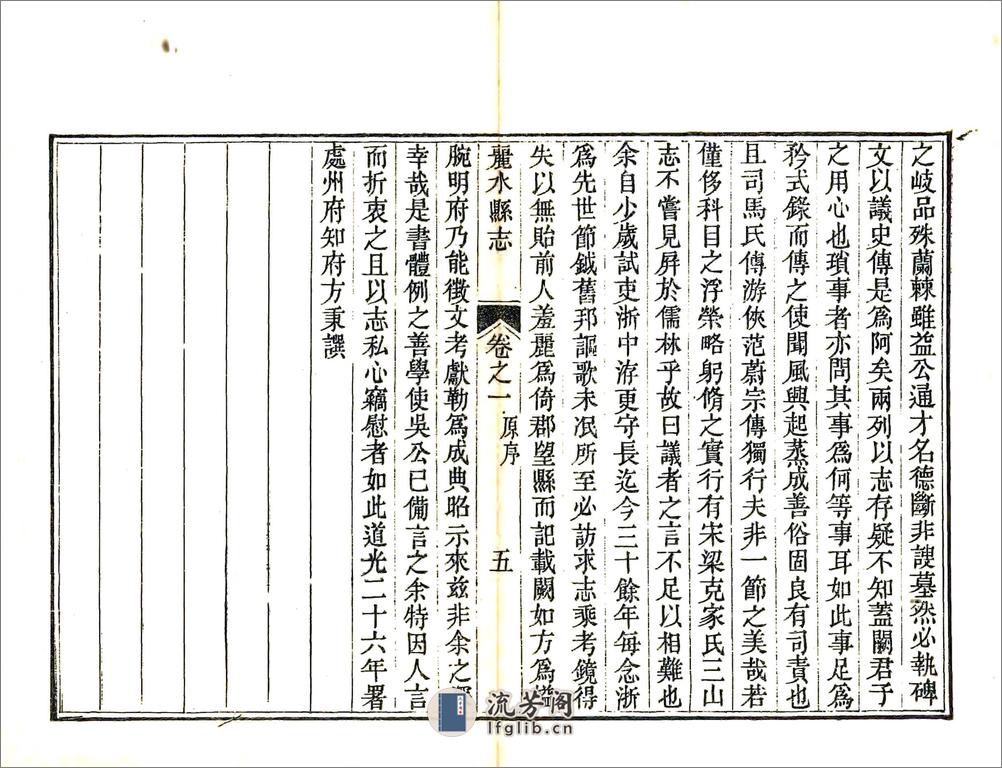 之岐品殊蘭棘雖益公通才名德斷非諛墓然必執碑
文以議史傳是爲阿矣兩列以志存疑不知蓋闕君子
之用心也瑣事者亦問其事爲何等事耳如此事足爲
矜式錄而傳之使聞風興起蒸成善俗固良有司責也
且司馬氏傳游俠范蔚宗傳獨行夫非一節之美哉若
僅侈科目之浮榮略躬脩之實行有宋梁克家氏三山
志不嘗見屏於儒林乎故曰議者之言不足以相難也
余自少歲試吏浙中洊更守長迄今三十餘年每念浙
爲先世節鉞舊邦謳歌未泯所至必訪求志乘考鏡得
失以無貽前人羞麗爲倚郡望縣而記載闕如方爲
麗水縣志 卷之一 原序 五
腕明府乃能徵文考獻勒爲成典昭示來茲非余之
幸哉是書體例之善學使吳公已備言之余特因人言
而折衷之且以志私心竊慰者如此道光二十六年署
處州府知府方秉譔
流芳阁
lfglib.cn